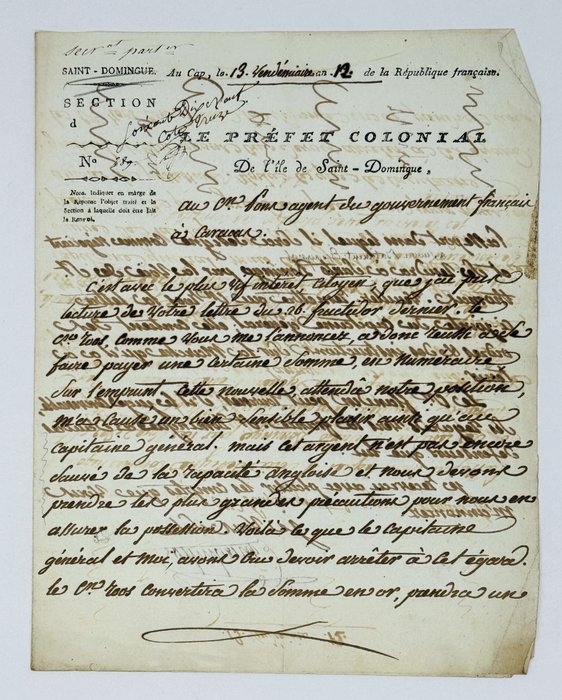 Secr.at part.er
SAINT-DOMINGUE.
Au Cap, le 13 Vendémiaire an 12 de la République française.
SECTION
d
LE PRÉFET COLONIAL
N°
De l'île de Saint-Domingue,
NOTA. Indiquer en marge de
la Réponse l'objet traité et la
Section à laquelle doit être fait
le RENVOI.
au C.en Pons agent du gouvernement français
à Caracas.
C'est avec le plus vif interet, Citoyen, que j'ai pris
lecture de votre lettre du 26 fructidor dernier. Le
C.en Roos, comme vous me l'annoncez, a donc reussi à se
faire payer une certaine somme, en numeraire
sur l'emprunt. Cette nouvelle, attendû notre position,
m'a causé un bien sensible plaisir ainsi qu'au
capitaine général, mais cet argent n'est pas encore
sauvé de la rapacité angloise et nous devons
prendre les plus grandes précautions pour nous en
assurer la possession. Voila ce que le capitaine
général et moi, avons cru devoir arrêter à cet égard.
Le C.en Roos convertira la somme en or, prendra un